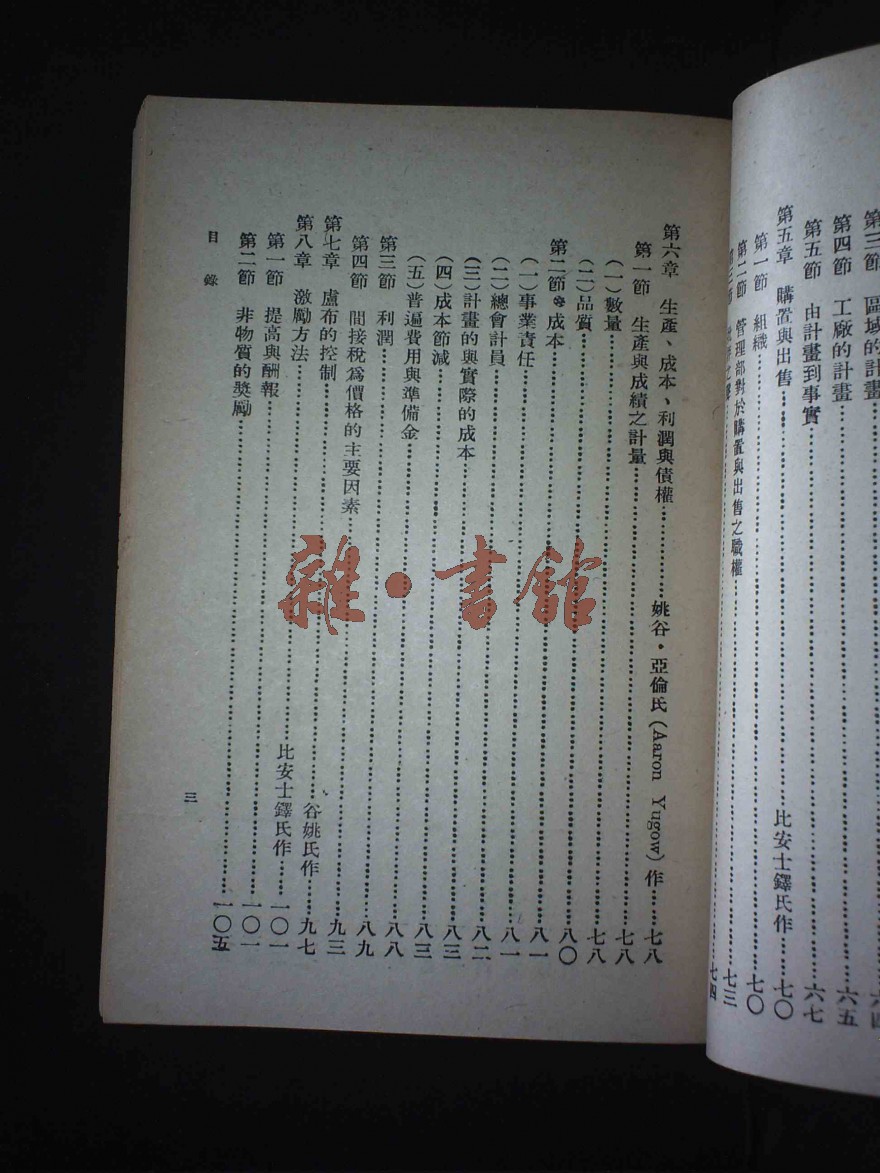 第三節 區域的計畫……六四
第四節 工廠的計畫……六五
第五節 由計畫到事實……六七
第五章 購置與出售……比安士鐸氏作……七〇
第一節 組織……七〇
第二節 管理部對於購置與出售之職權……七三
第三節……七四
第六章 生產、成本、利潤與債權……姚谷•亞倫氏(Aaron Yugow)作……七八
第一節 生產與成績之計量……七八
(一)數量……七八
(二)品質……八〇
第二節 成本……八一
(一)事業責任……八一
(二)總會計員……八二
(三)計畫的與實際的成本……八三
(四)成本節減……八三
(五)普遍費用與準備金……八八
第三節 利潤……八九
第四節 間接稅爲價格的主要因素……九三
第七章 盧布的控制……谷姚氏作……九七
第八章 激勵方法……比安士鐸氏作……一〇一
第一節 提高與酬報……一〇一
第二節 非物質的獎勵……一〇五
目錄
三
雜•書館